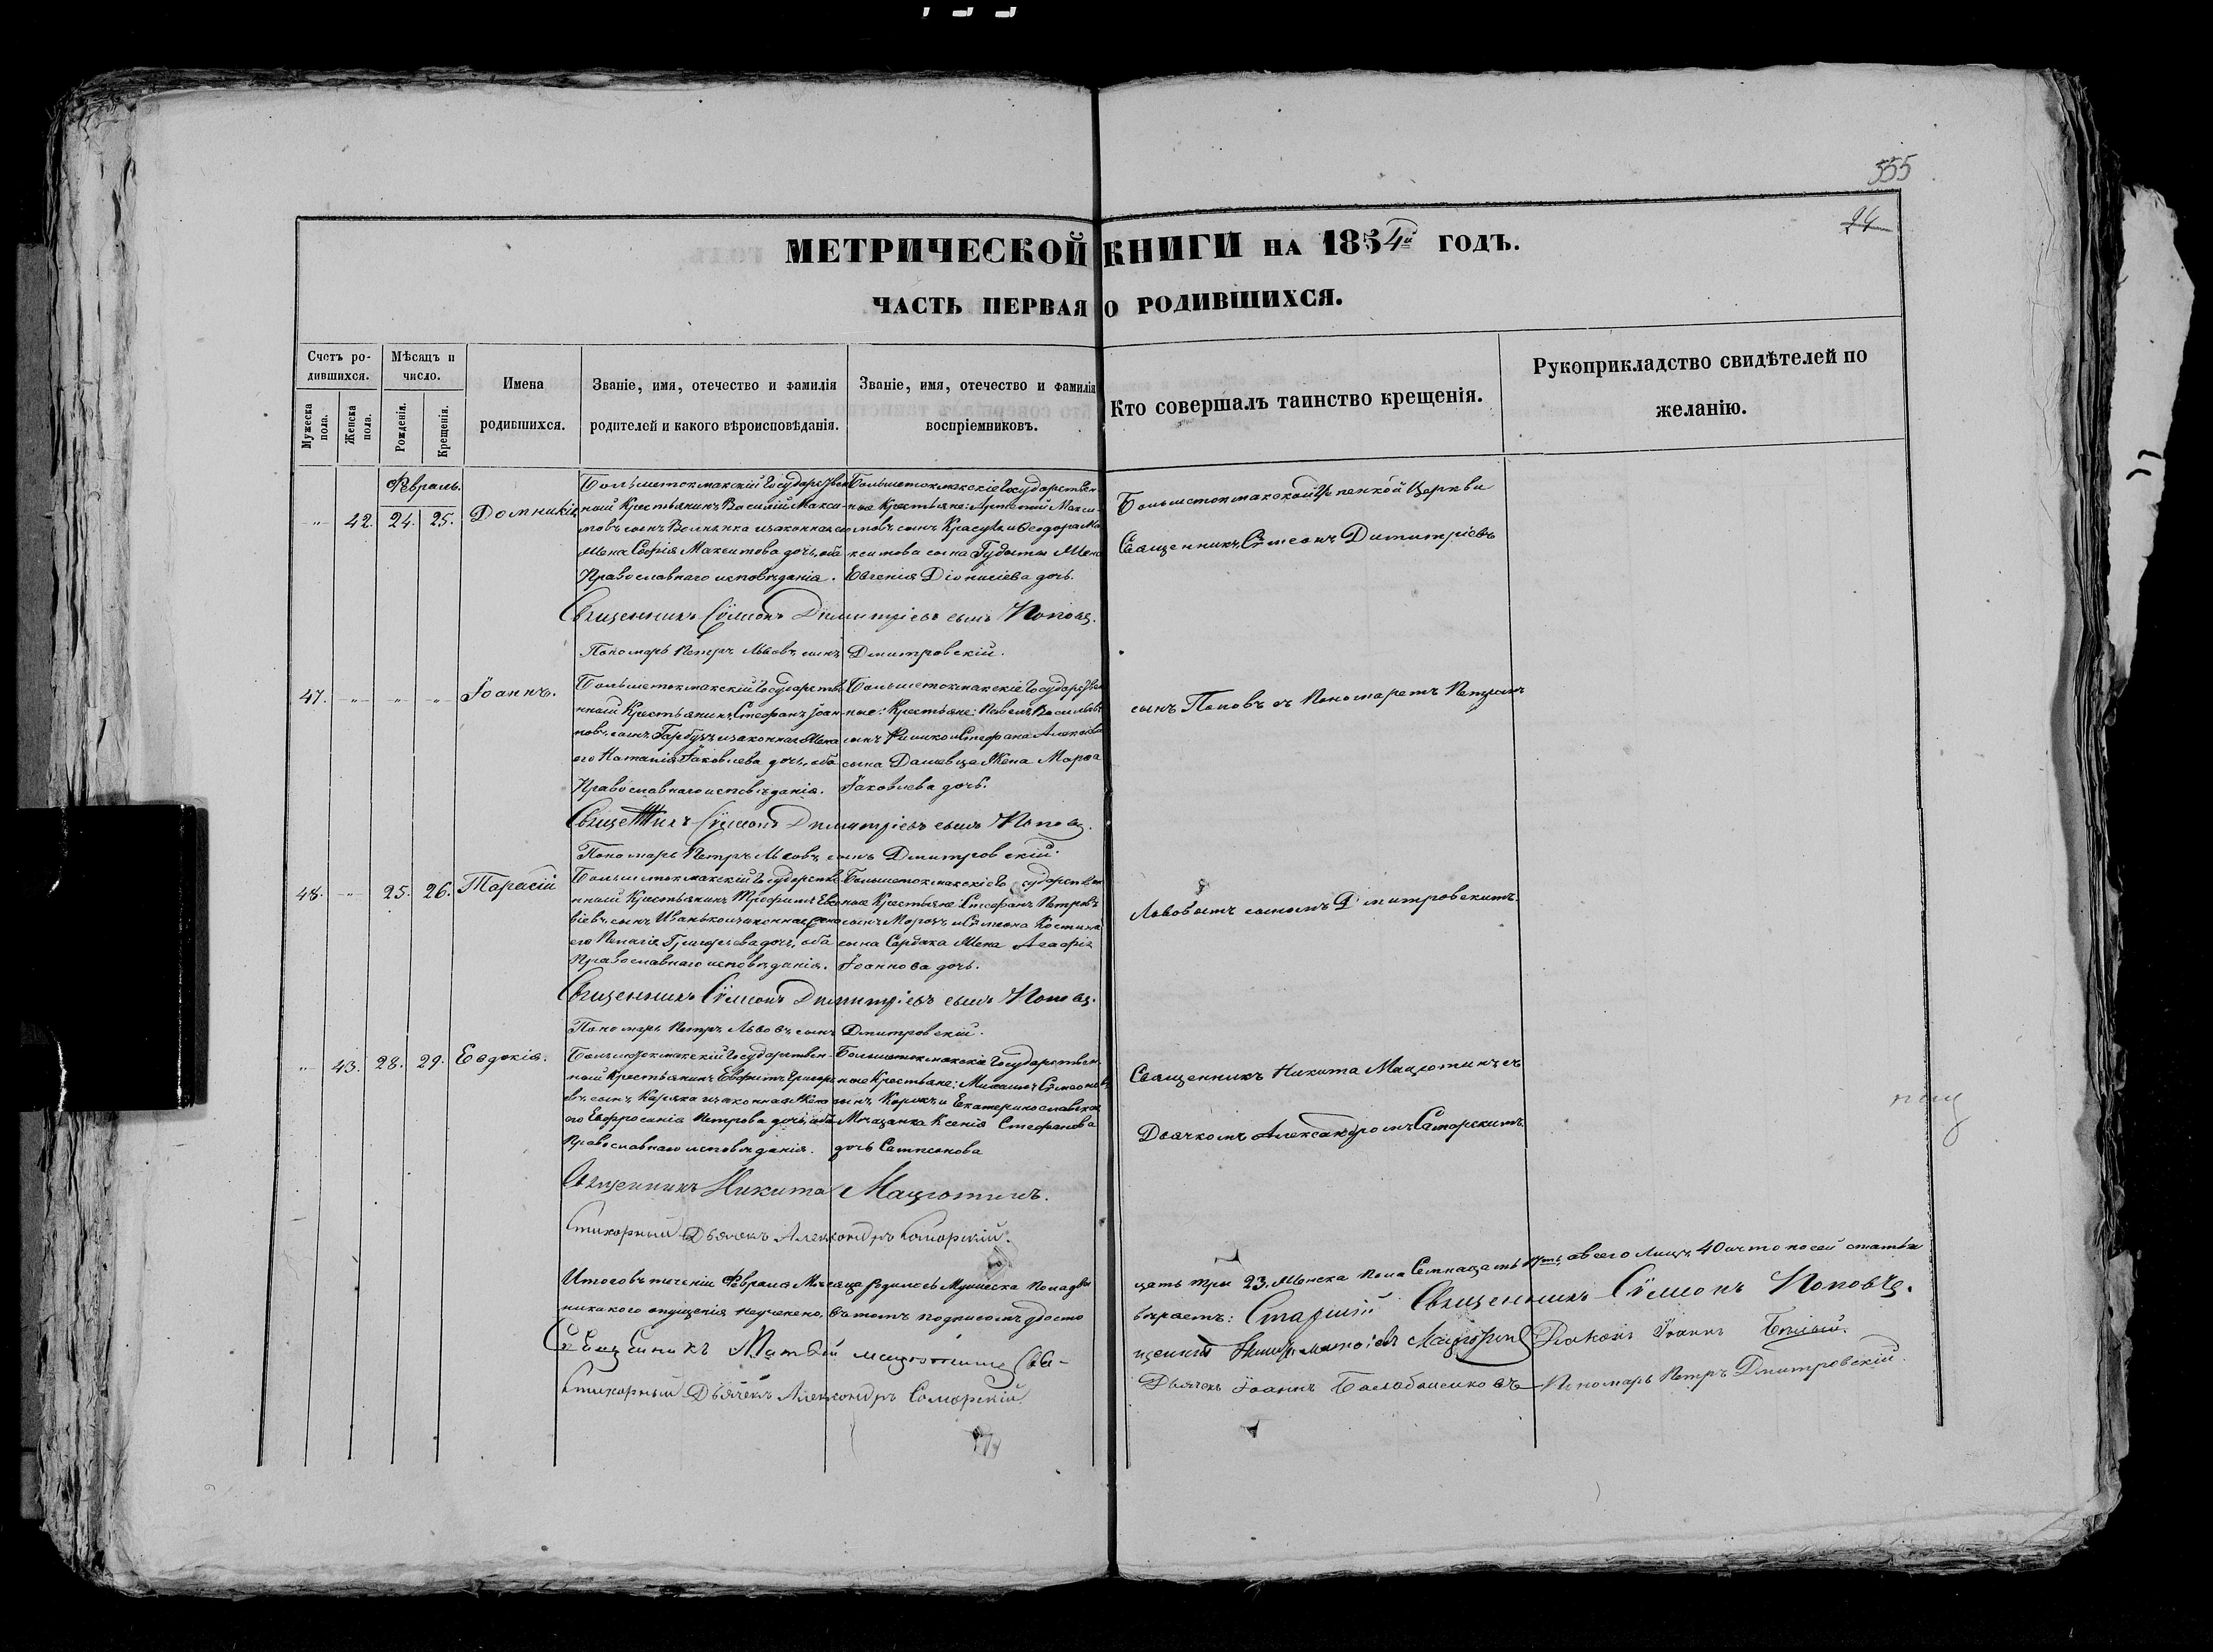 555
24
МЕТРИЧЕСКОЙ КНИГИ НА 1854й ГОДЪ.
ЧАСТЬ ПЕРВАЯ О РОДИВШИХСЯ.
Счетъ ро-
дившихся.
Мужеска пола.
Женска пола.
Мѣсяцъ и
число.
Рожденія.
Крещенія.
Имена
родившихся.
Званіе, имя, отечество и фамилія
родителей и какого вѣроисповѣданія.
Званіе, имя, отечество и фамилія
воспріемниковъ.
Кто совершалъ таинство крещенія.
Рукоприкладство свидѣтелей по
желанію.
Февраль.
" 42. 24. 25. Домникія
Большетокмакскій Государствен
ный Крестьянинъ Василій Макси-
мовъ сынъ законная
Жена Софія Максимова дочь, оба
Православнаго исповѣданія.
Большетокмакскіе Государствен-
ные Крестьяне: Макси-
мовъ сынъ и Ѳеодора Ма
ксимова сына Жена
Евгенія Діонисіева дочь.
Большетокмакской Церкви
Священникъ Сѵмеонъ Димитріевъ
Священникъ Сѵмеонъ Димитріевъ сынъ Поповъ.
Пономарь Петръ Львовъ сынъ Дмитровскій.
47. " " " Іоаннъ.
Большетокмакскій Государстве
нный Крестьянинъ Стефанъ Іоан-
новъ сынъ Гарбузъ и законная Жена
его Наталія Іаковлева дочь, оба
Православнаго исповѣданія.
Большетокмакскіе Государствен
ные: Крестьяне: Павелъ Васильевъ
сынъ и Стефана
сына Жена Марѳа
Іаковлева дочь.
сынъ Поповъ съ Пономаремъ Петромъ
Священникъ Сѵмеонъ Димитріевъ сынъ Поповъ.
Пономарь Петръ Львовъ сынъ Дмитровскій.
48. " 25. 26. Тарасій
Большетокмакскій Государстве
нный Крестьянинъ Трофимъ Евс
віевъ сынъ Иванько и законная Жена
его Пелагія Григорьева дочь, оба
Православнаго исповѣданія.
Большетокмакскіе Государствен
ные Крестьяне: Стефанъ Петровъ
сынъ Морозъ и Сѵмеона
сына Сердюка Жена Агафія
Іоаннова дочь.
Львовымъ сыномъ Дмитровскимъ.
Священникъ Сѵмеонъ Димитріевъ сынъ Поповъ.
Пономарь Петръ Львовъ сынъ Дмитровскій.
" 43. 28. 29. Евдокія.
Большетокмакскій Государствен-
ный Крестьянинъ Евфимъ Григорь
евъ сынъ Каряка и законная Жена
его Евфросинія Петрова дочь, оба
Православнаго исповѣданія.
Большетокмакскіе Государствен-
ные Крестьяне: Михаилъ Сѵмеоновъ
сынъ и Екатеринославская
Мѣщанка Ксенія Стефанова
дочь
Священникъ Никита Мацютинъ съ
Дьячкомъ Александромъ Саморскимъ
Священникъ Никита Мацютинъ.
Стихарный Дьячекъ Александръ Саморскій.
Итого въ теченіи Февраля Мѣсяца родилось Мужеска Пола два
цать три 23. Женска пола Семнацать 17ть, а всего лицъ 40 и что по сей статьи
никакого опущенія неучинено, въ томъ подписомъ досто
вѣряемъ: Старшій Священникъ Сѵмеонъ Поповъ.
Священникъ
Діаконъ Іоаннъ
Стихарный Дьячекъ Александръ Саморскій
Дьячекъ Іоаннъ
Пономарь Петръ Дмитровскій.